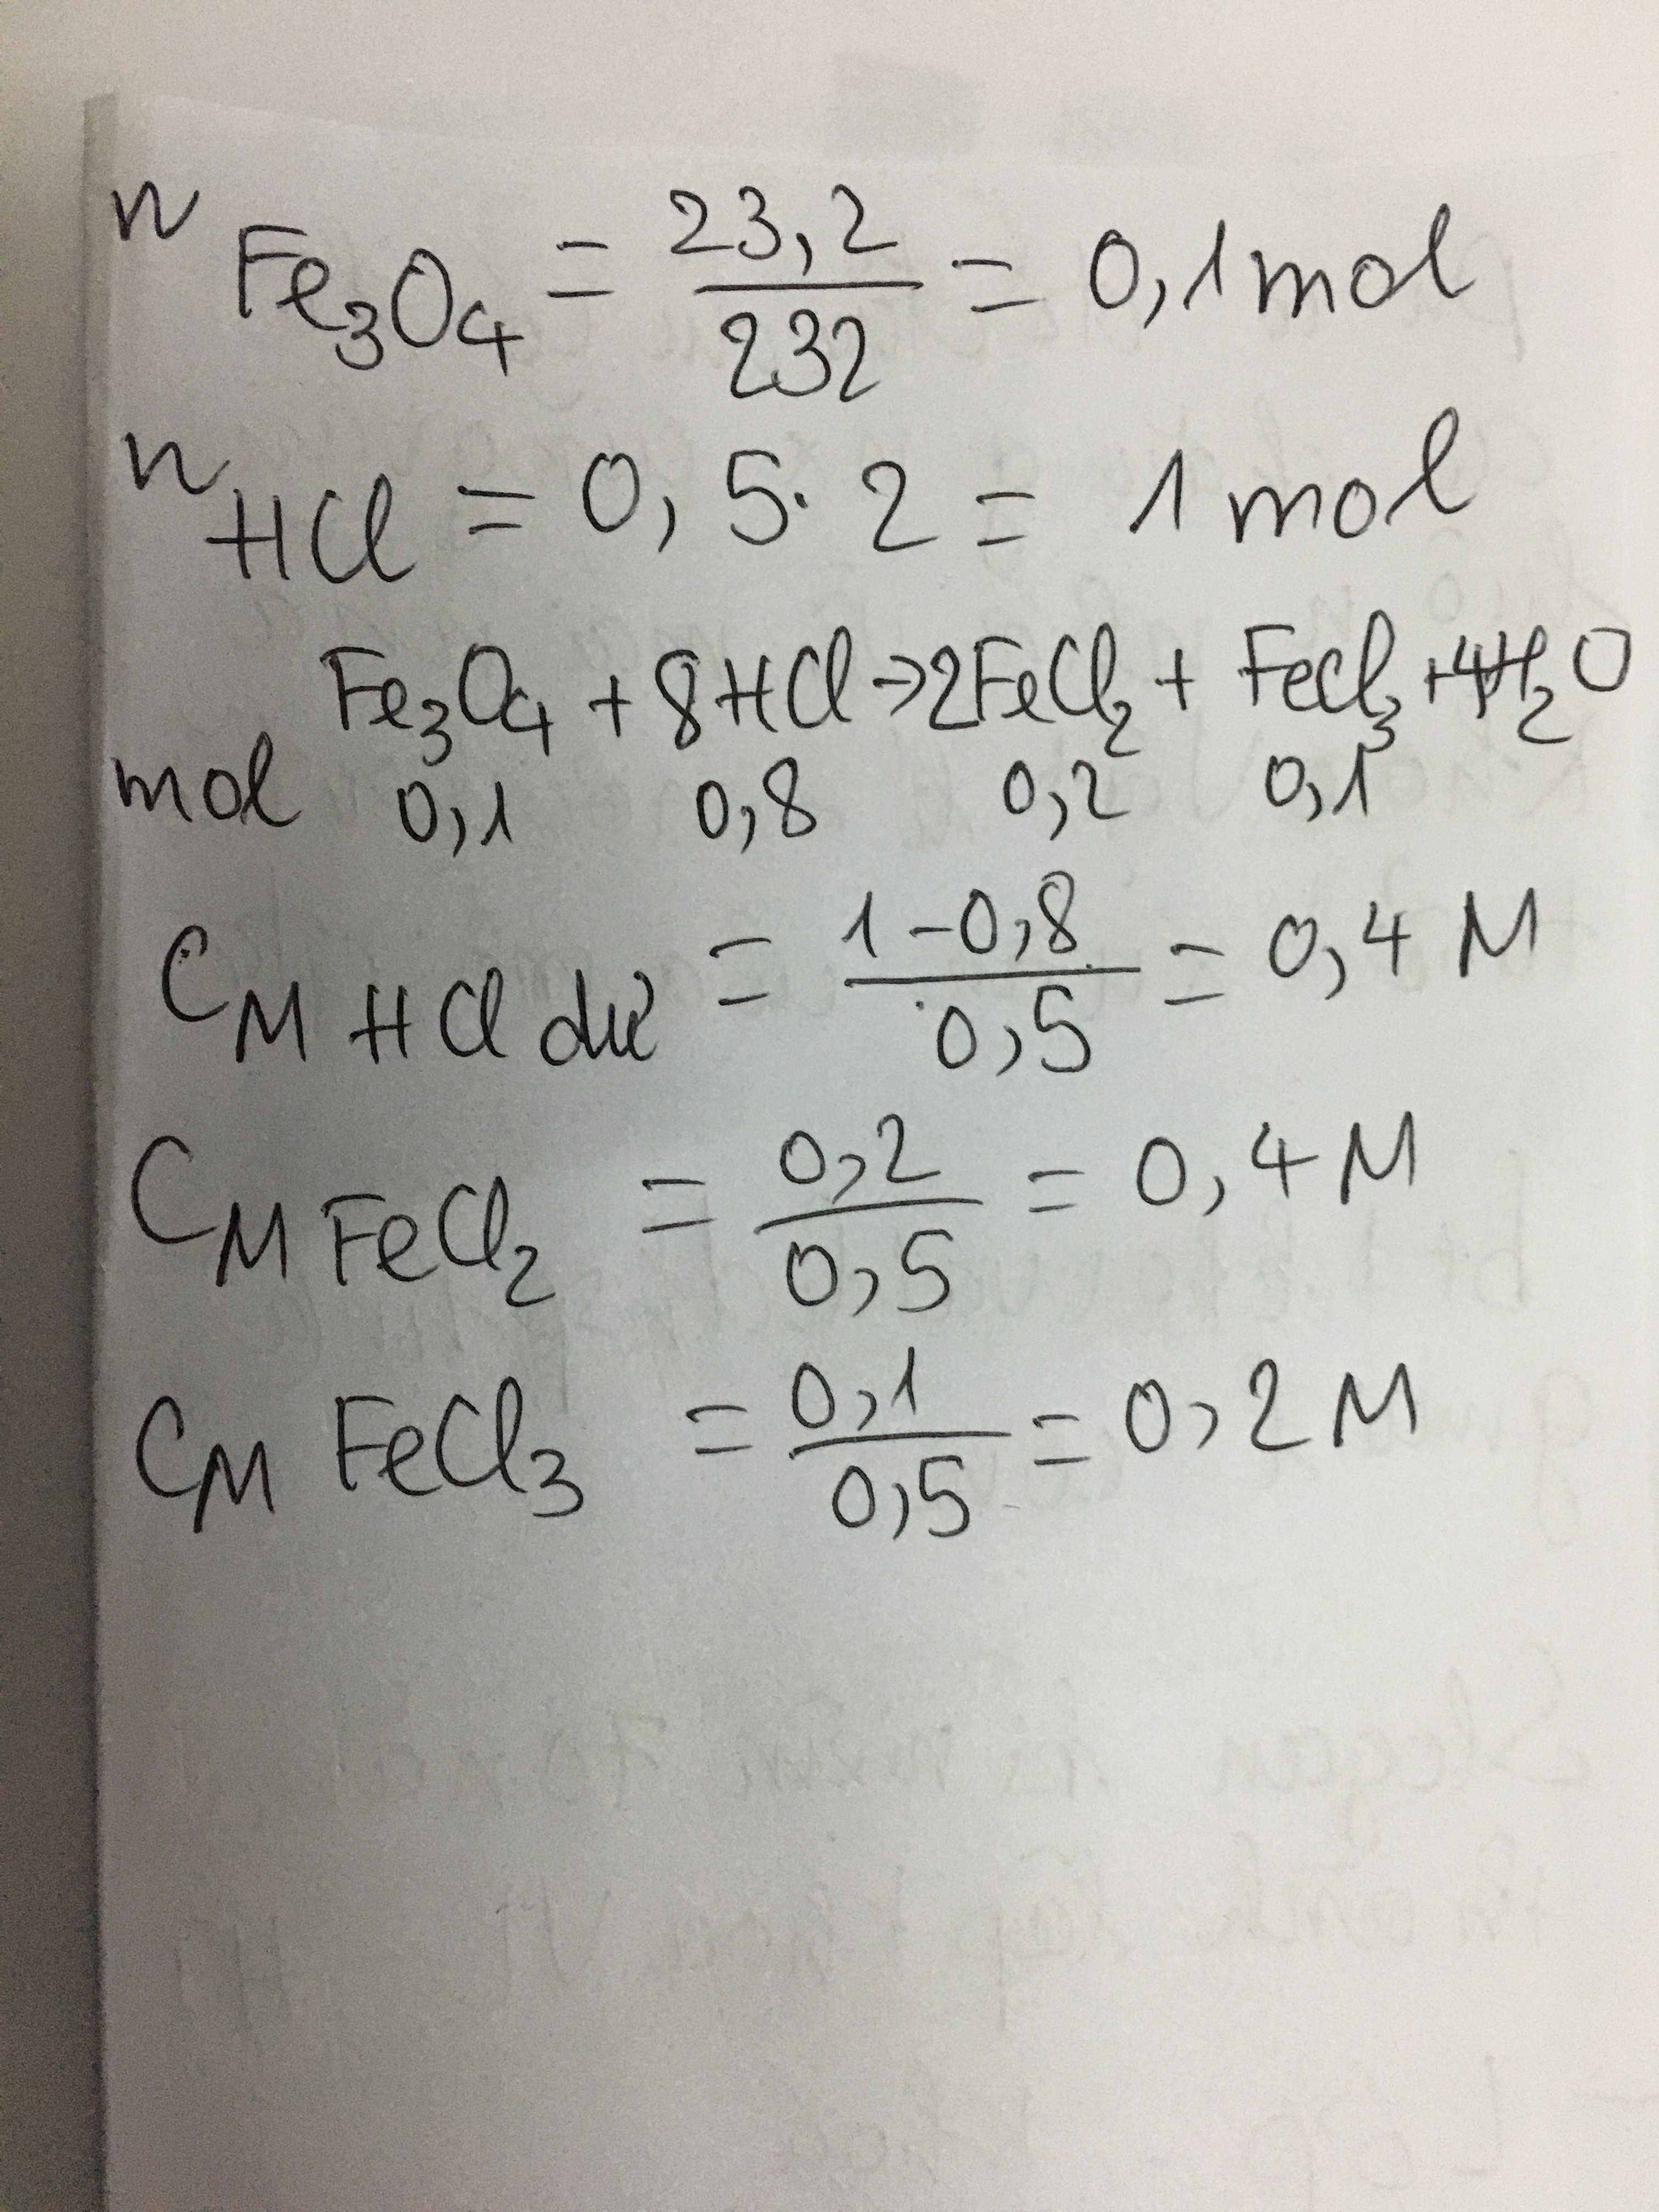 n Fe3O4 = 23,2 / 232 = 0,1 mol
n HCl = 0,5 . 2 = 1 mol
Fe3O4 + 8HCl → 2FeCl2 + FeCl3 + 4H2O
mol 0,1 0,8 0,2 0,1
CM HCl dư = 1-0,8 / 0,5 = 0,4 M
CM FeCl2 = 0,2 / 0,5 = 0,4 M
CM FeCl3 = 0,1 / 0,5 = 0,2 M